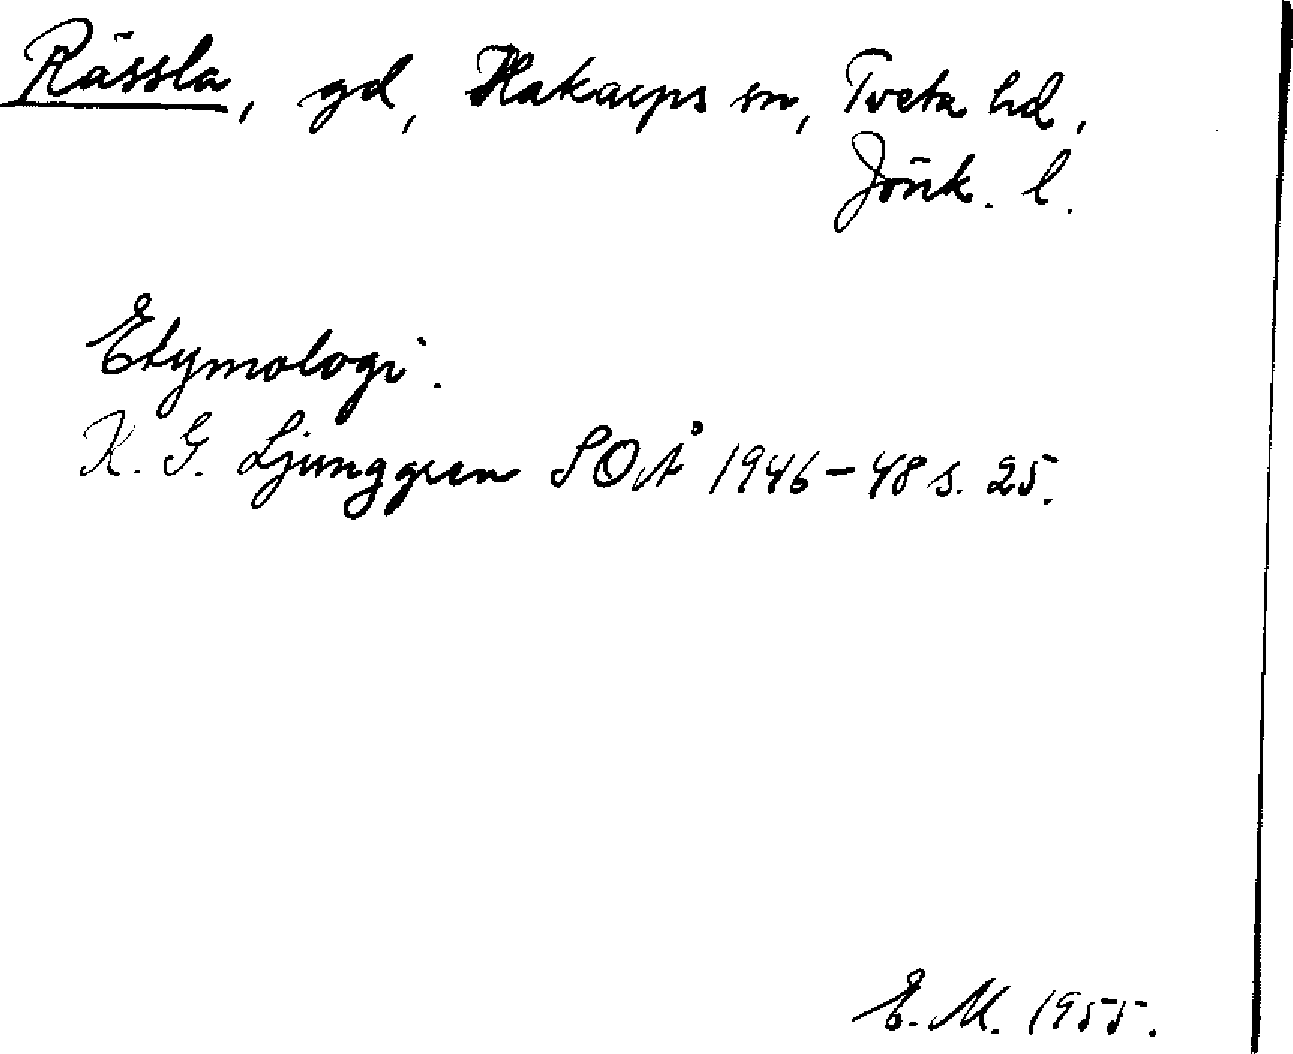 Rässla, gd, Hakarps sn, Tveta hd,
Jönk. l.
Etymologi.
K. G. Ljunggren SOÅ 1946-48 s. 25.
E. M. 1955.